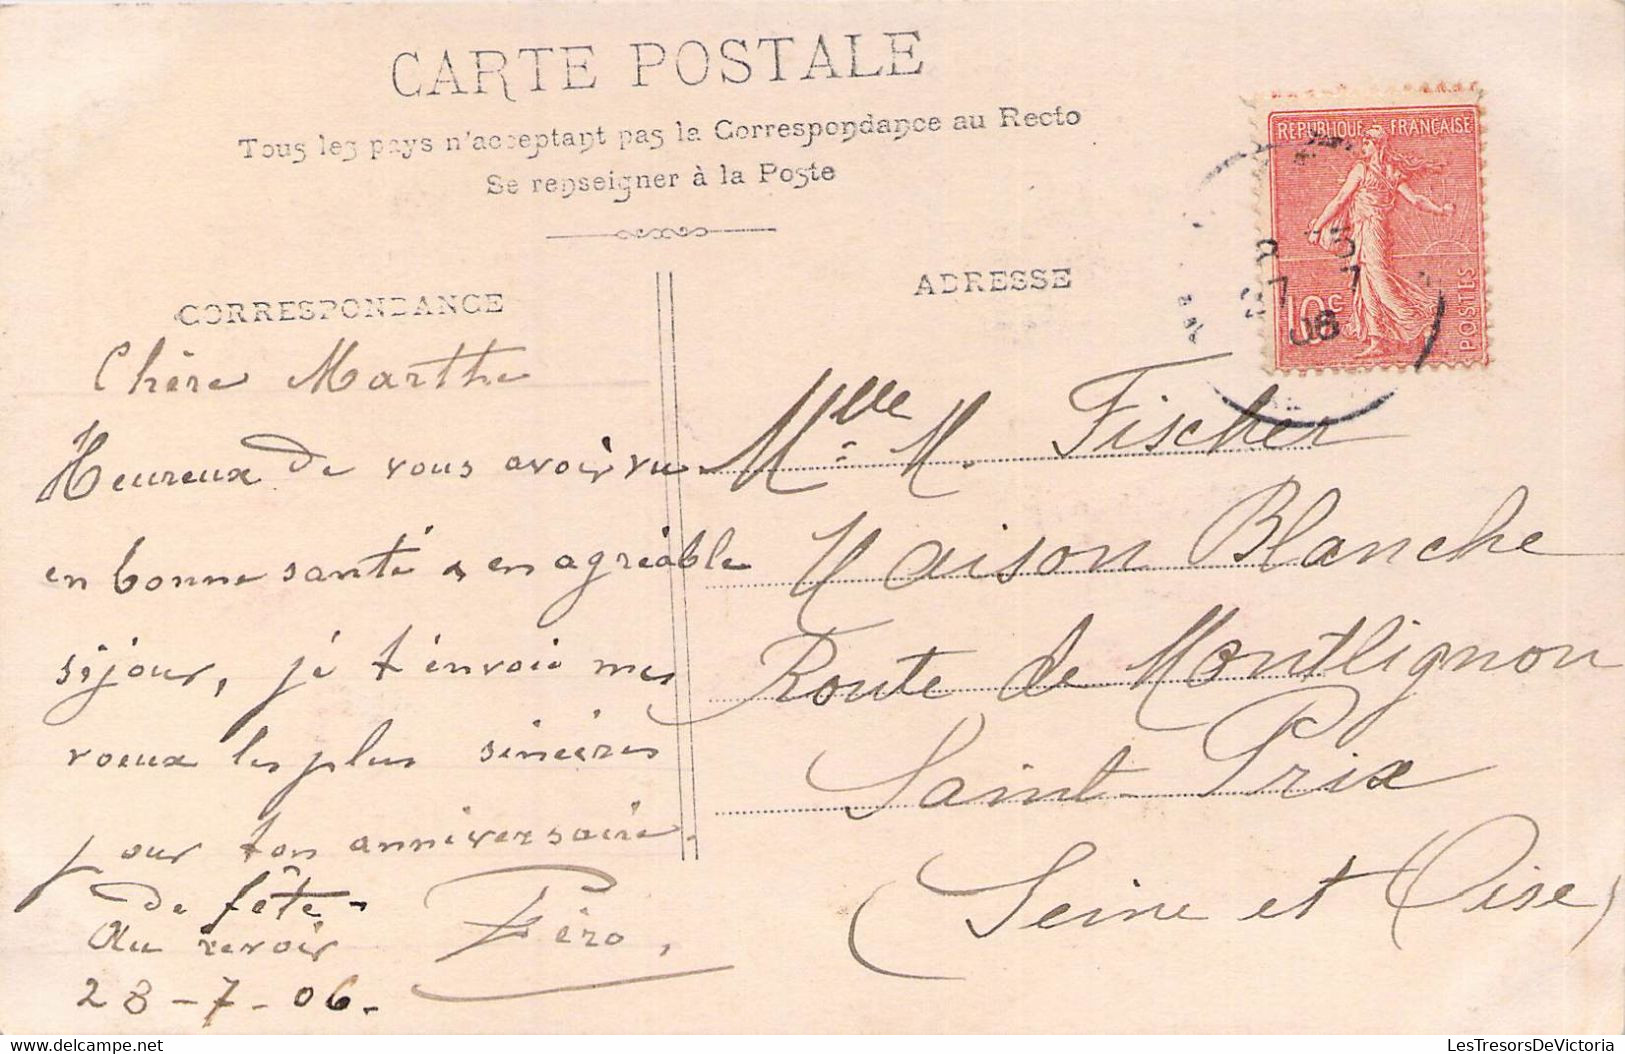 CARTE POSTALE
Tous les pays n'acceptant pas la Correspondance au Recto
Se renseigner à la Poste
CORRESPONDANCE
Chère Marthe
Heureux de vous avoir vu
en bonne santé & en agréable
séjour, je t'envoie mes
voeux les plus sincères
pour ton anniversaire
de fête -
Au revoir
28-7-06.
ADRESSE
Mlle M. Fischer
Maison Blanche
Route de Montlignon
Saint-Prix
(Seine et Oise)
REPUBLIQUE FRANÇAISE
10c
POSTES
06
LesTresorsDeVictoria
www.delcampe.net